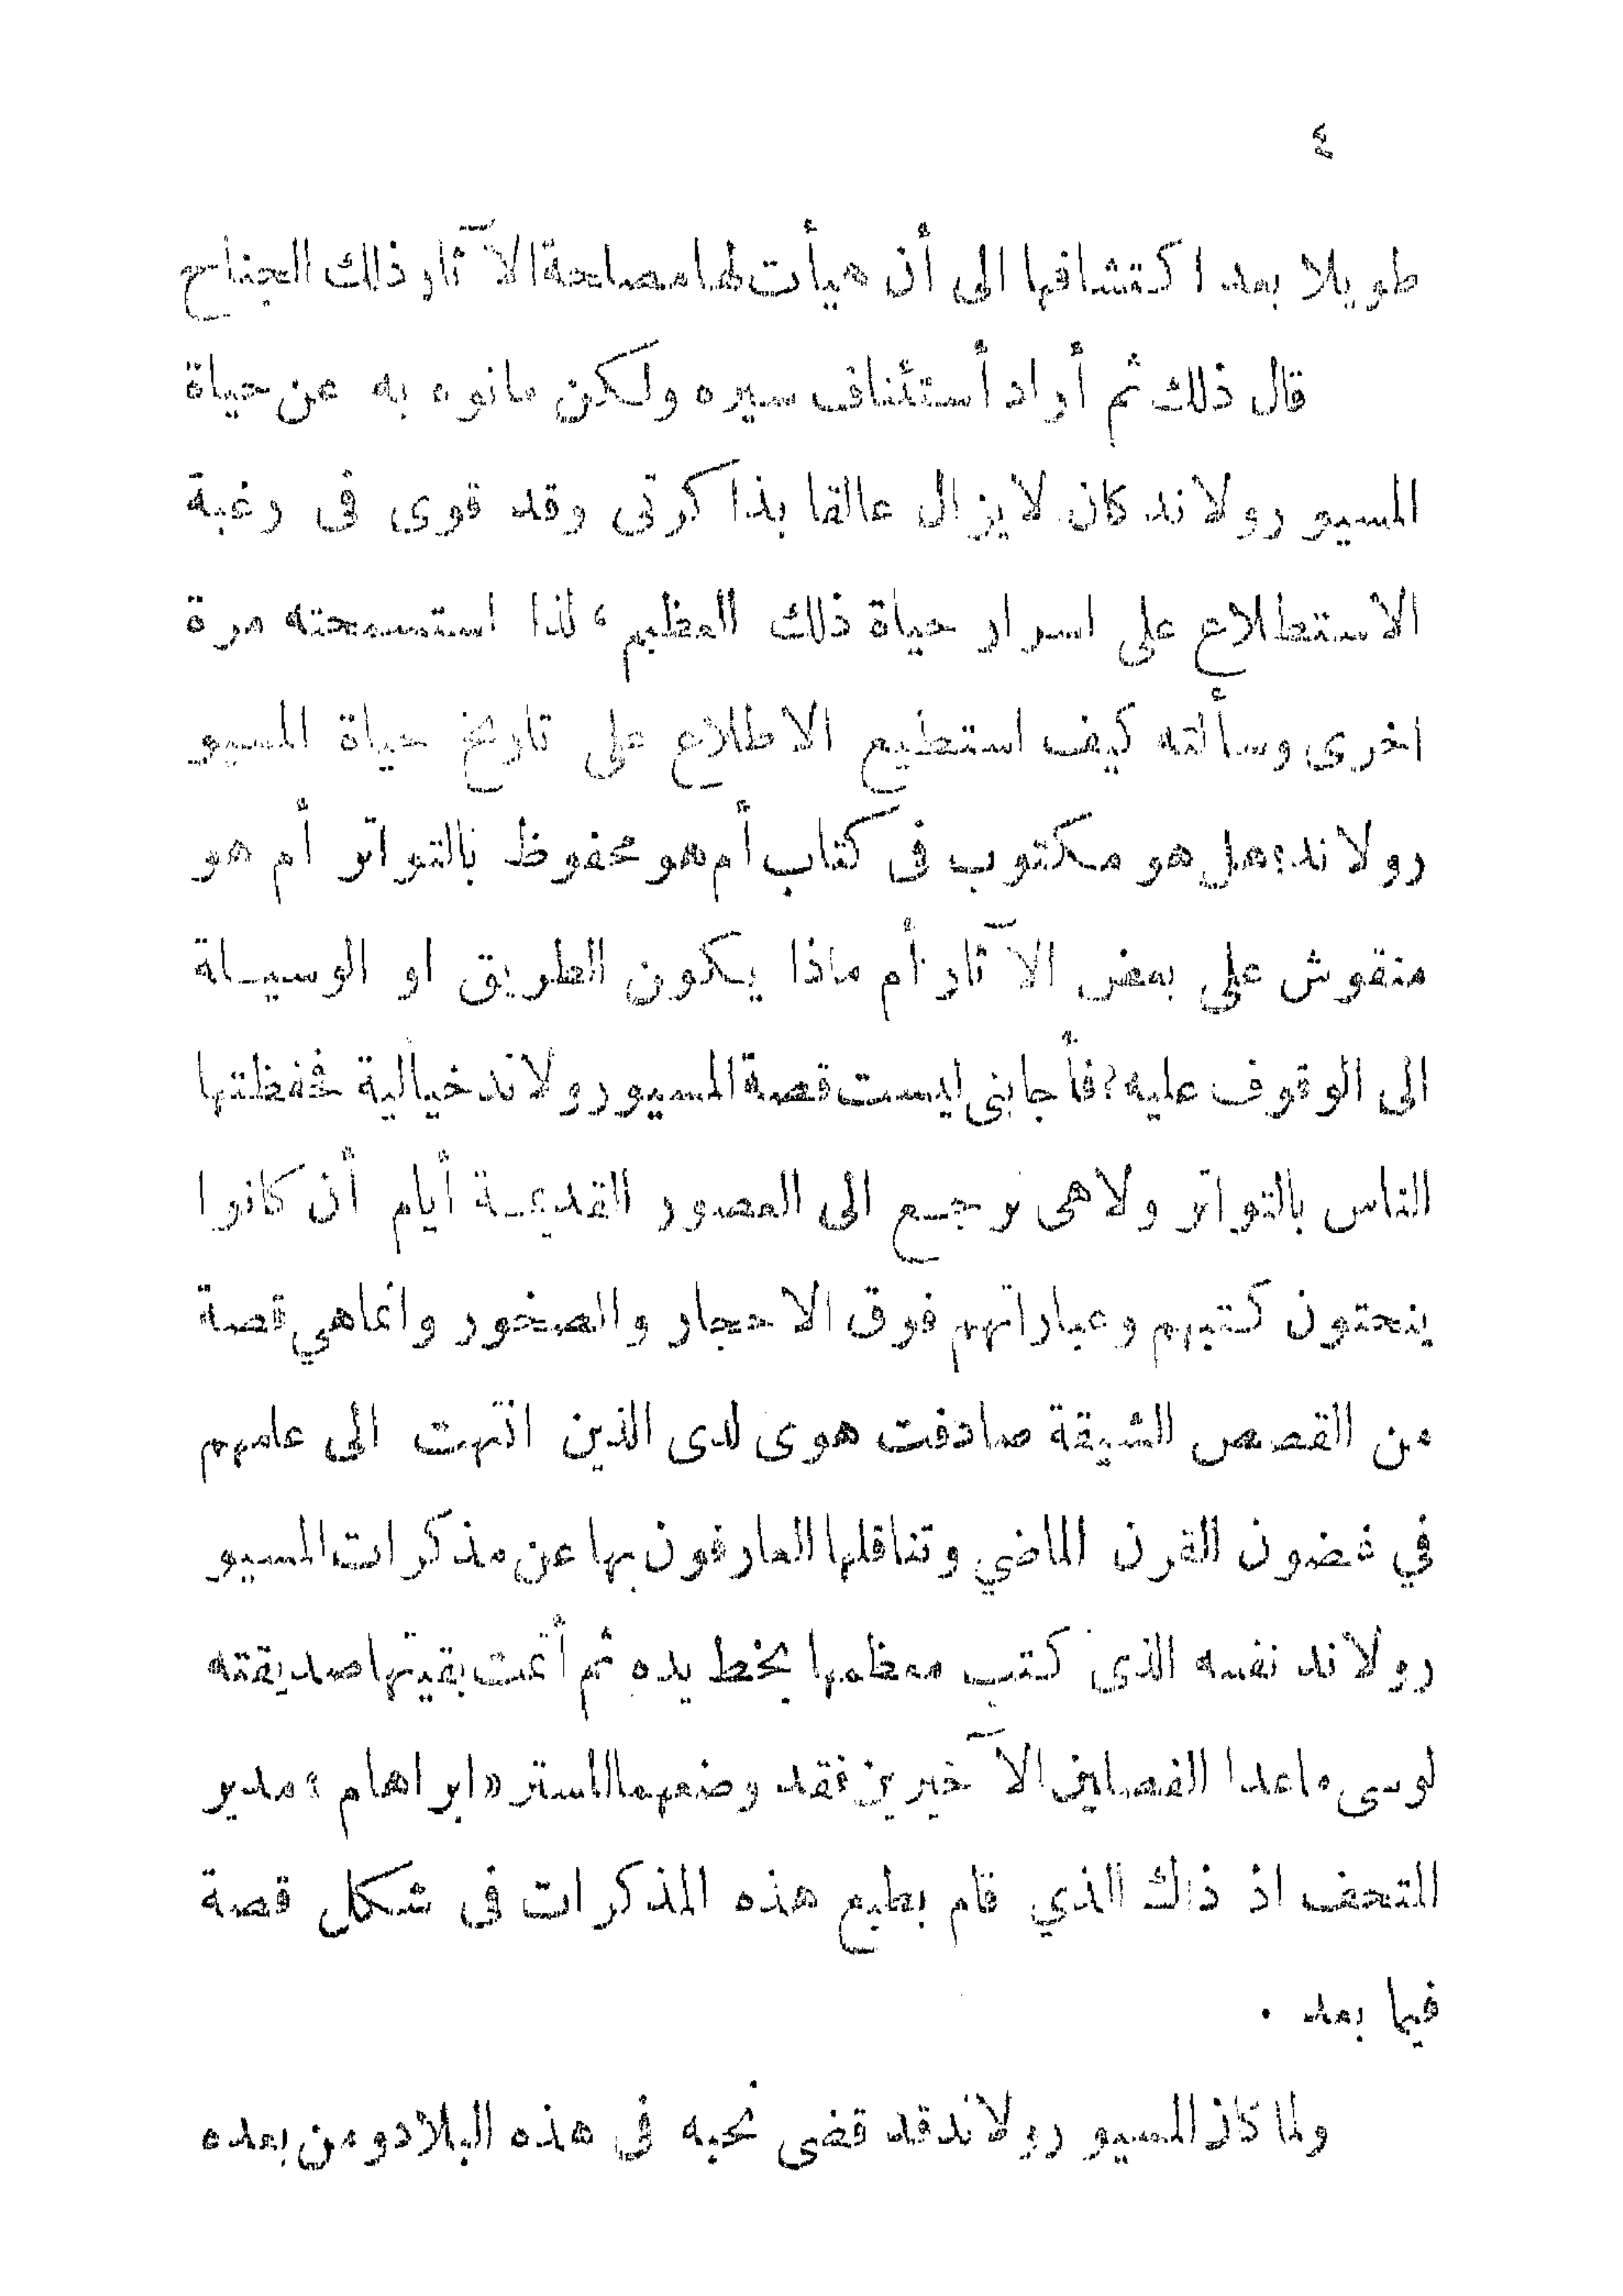 ٤
طويلا بعد اكتشافها الى أن هيأت لها مصلحة الآثار ذلك الجناح
قال ذلك ثم أراد أستئناف سيره ولكن مانوه به عن حياة
المسيو رولاند كان لايزال عالقا بذاكرتى وقد قوى فى رغبة
الاستطلاع على اسرار حياة ذلك العظيم، لذا استسمحته مرة
اخرى وسألته كيف استطيع الاطلاع على تاريخ حياة المسيو
رولاند؟هل هو مكتوب فى كتاب أم هو محفوظ بالتواتر أم هو
منقوش على بعض الآثار أم ماذا يكون الطريق او الوسيلة
الى الوقوف عليه؟فأجابنى ليست قصة المسيو رولاند خيالية فحفظتها
الناس بالتواتر ولاهى ترجع الى العصور القديمة أيام أن كانوا
ينحتون كتبهم وعباراتهم فوق الاحجار والصخور وانماهي قصة
من القصص الشيقة صادفت هوى لدى الذين انتهت الى علمهم
في غضون القرن الماضي وتناقلها العارفون بها عن مذكرات المسيو
رولاند نفسه الذى كتب معظمها بخط يده ثم أتمت بقيتها صديقته
لوسى ماعدا الفصلين الآخيرين فقد وضعهما المستر «ابراهام» مدير
المتحف اذ ذاك الذي قام بطبع هذه المذكرات فى شكل قصة
فيما بعد .
ولما كان المسيو رولاند قد قضى نحبه فى هذه البلاد ومن بعده